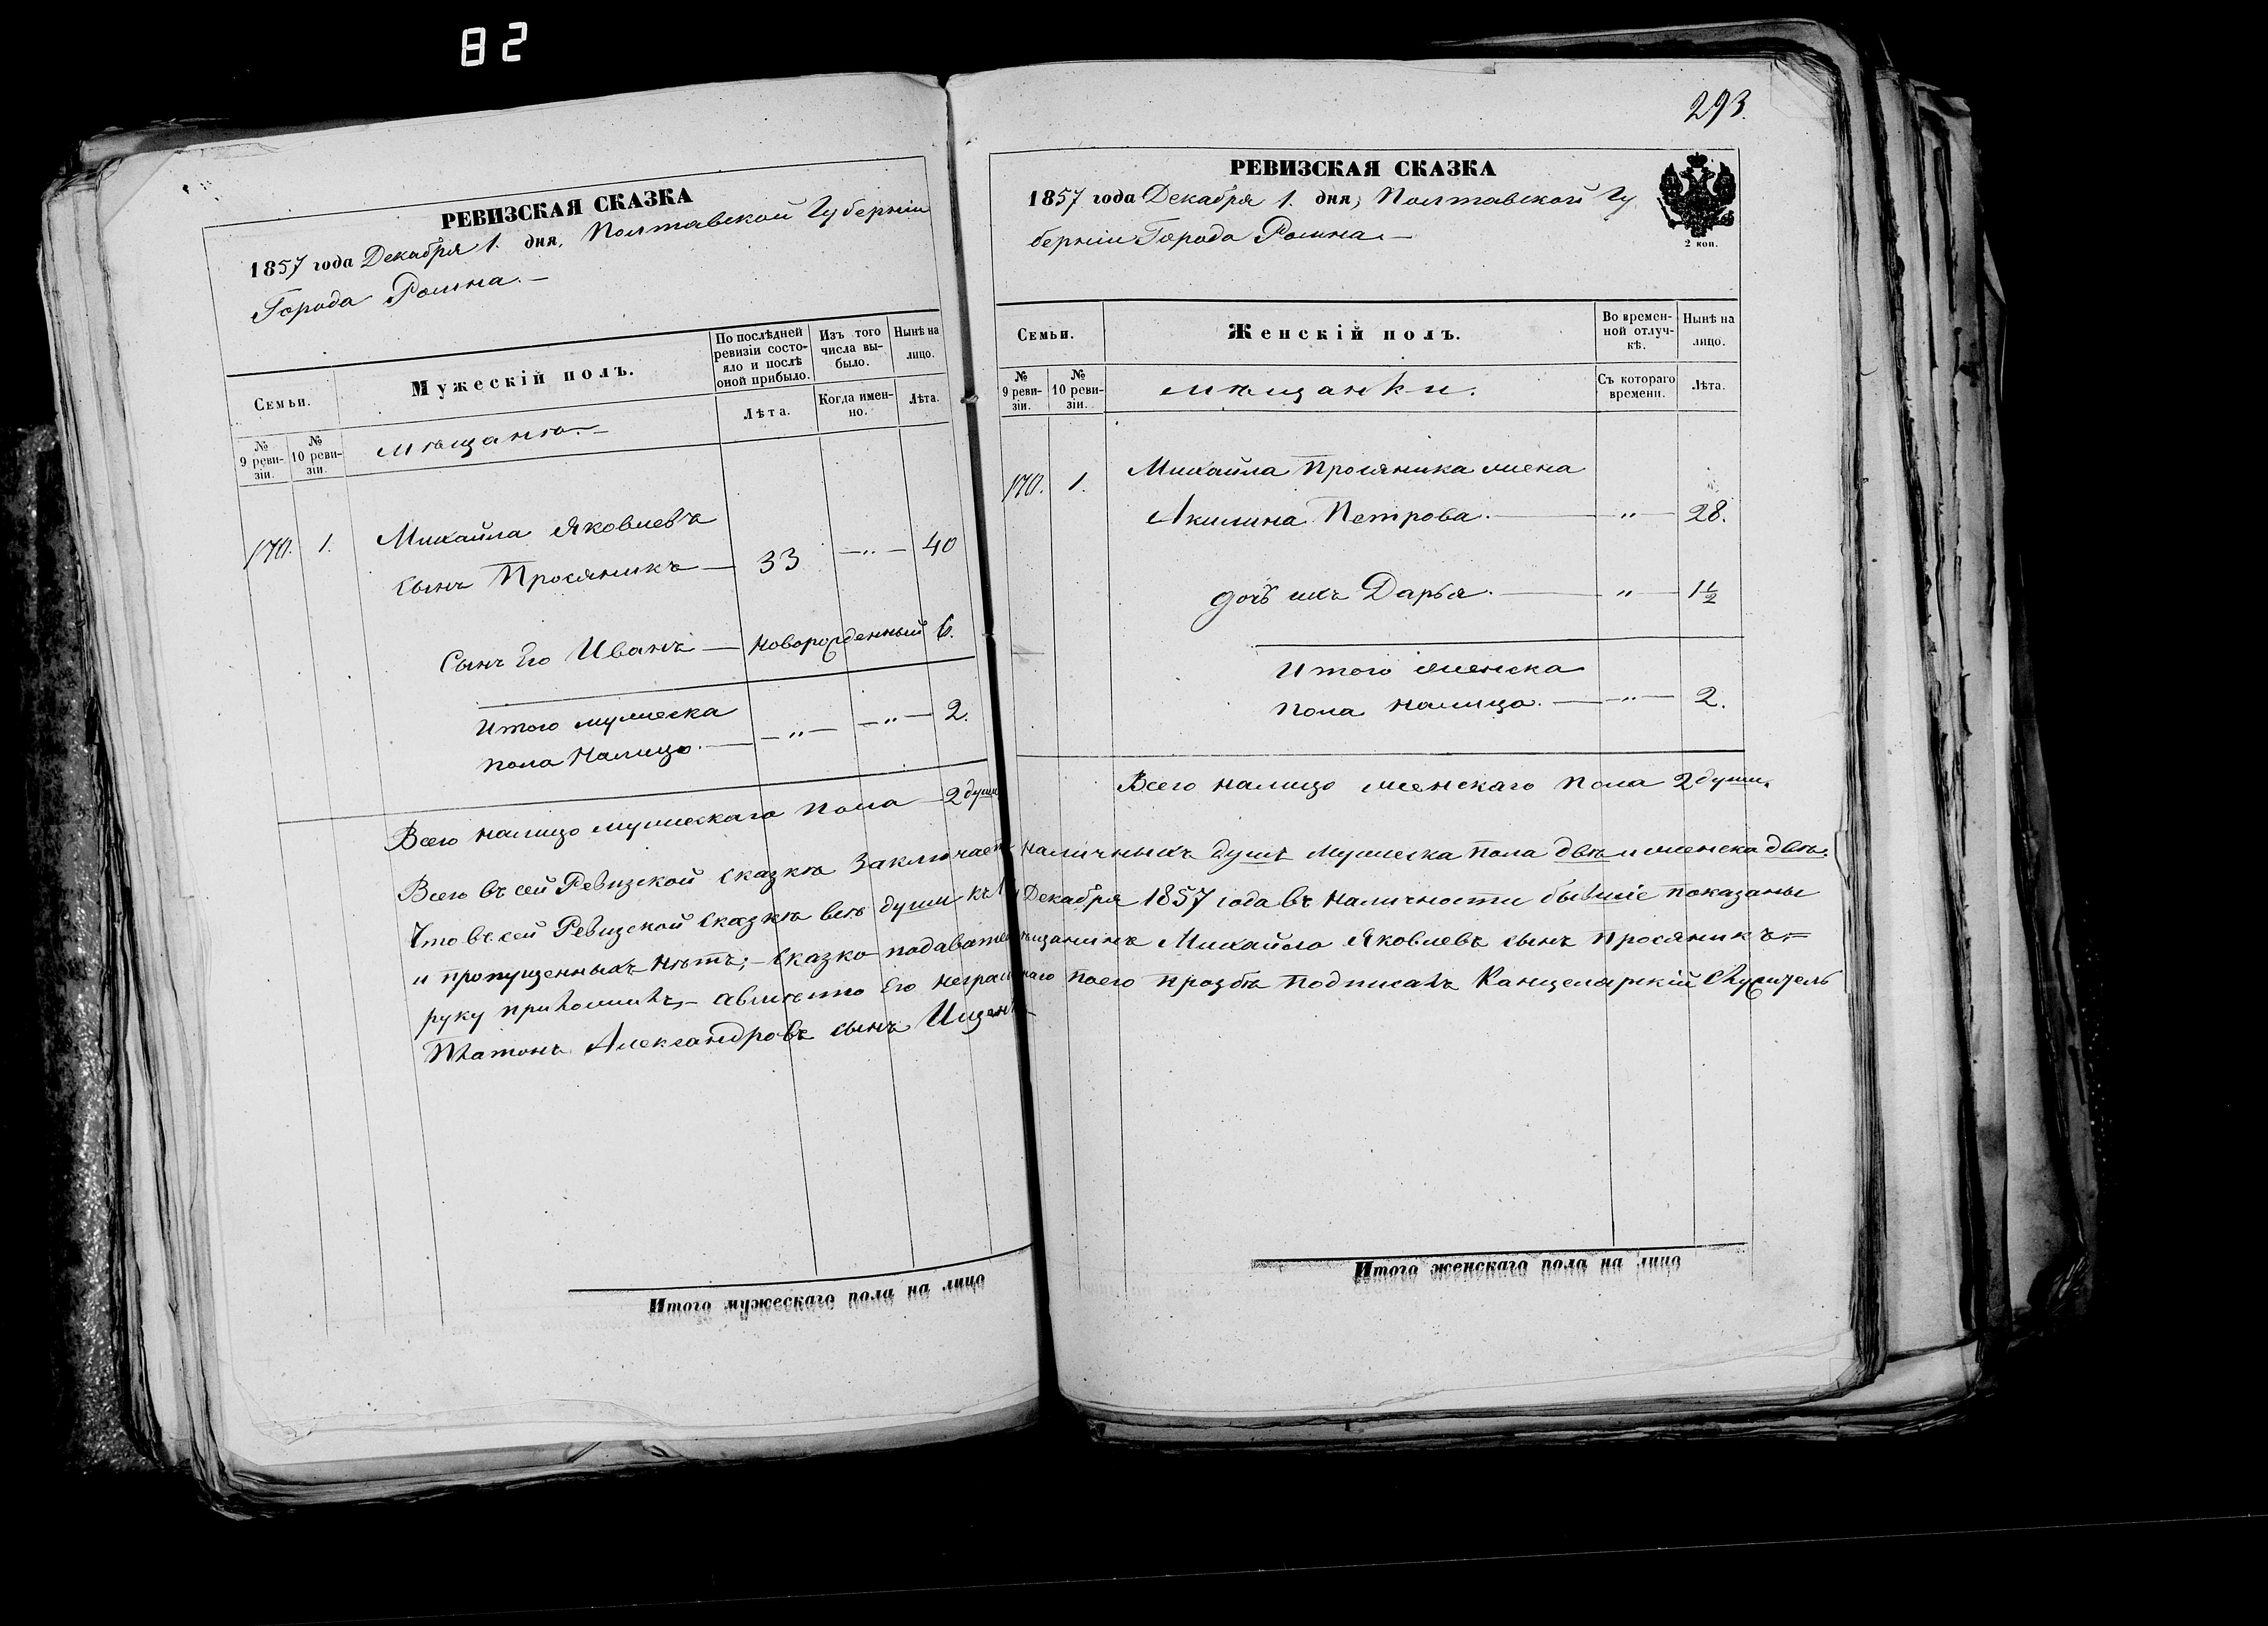 82
РЕВИЗСКАЯ СКАЗКА
1857 года Декабря 1. дня, Полтавской Губерніи
Города Ромна.—
Семьи.
Мужескій полъ.
По послѣдней ревизіи состояло и послѣ оной прибыло.
Изъ того числа выбыло.
Нынѣ на лицо.
№ 9 ревизіи.
№ 10 ревизіи.
мѣщане.—
Лѣта.
Когда именно.
Лѣта.
170. 1. Михайла Яковлевъ
сынъ Просяникъ — 33 —"— 40
Сынъ Его Иванъ — Новорожденный 6.
Итого мужеска
пола Налицо. — —"— —"— 2.
Всего налицо мужескаго пола — 2 души
293.
РЕВИЗСКАЯ СКАЗКА
1857 года Декабря 1. дня, Полтавской Гу
берніи Города Ромна.—
2 коп.
Семьи.
Женскій полъ.
Во временной отлучкѣ.
Нынѣ на лицо.
№ 9 ревизіи.
№ 10 ревизіи.
мѣщанки.
Съ котораго времени.
Лѣта.
170. 1. Михайла Просяника жена
Акилина Петрова. — " — 28.
дочь ихъ Дарья. — " — 1½
Итого женска
пола налицо. — " — 2.
Всего налицо женскаго пола 2 души.
Всего въ сей Ревизской сказкѣ Заключает Наличныхъ душъ Мужеска пола двѣ и женска двѣ.
Что въ сей Ревизской сказкѣ всѣ души къ Декабря 1857 года въ Наличности бывшіе показаны
и пропущенныхъ нѣтъ; — сказко подавате мѣщанинъ Михайло Яковлевъ сынъ Просяникъ =
руку приложилъ, — а вмѣсто Его Неграмтнаго по его прозбѣ подписалъ Канцелярскій Служитель
Платонъ Александровъ сынъ
Итого мужескаго пола на лицо
Итого женскаго пола на лицо